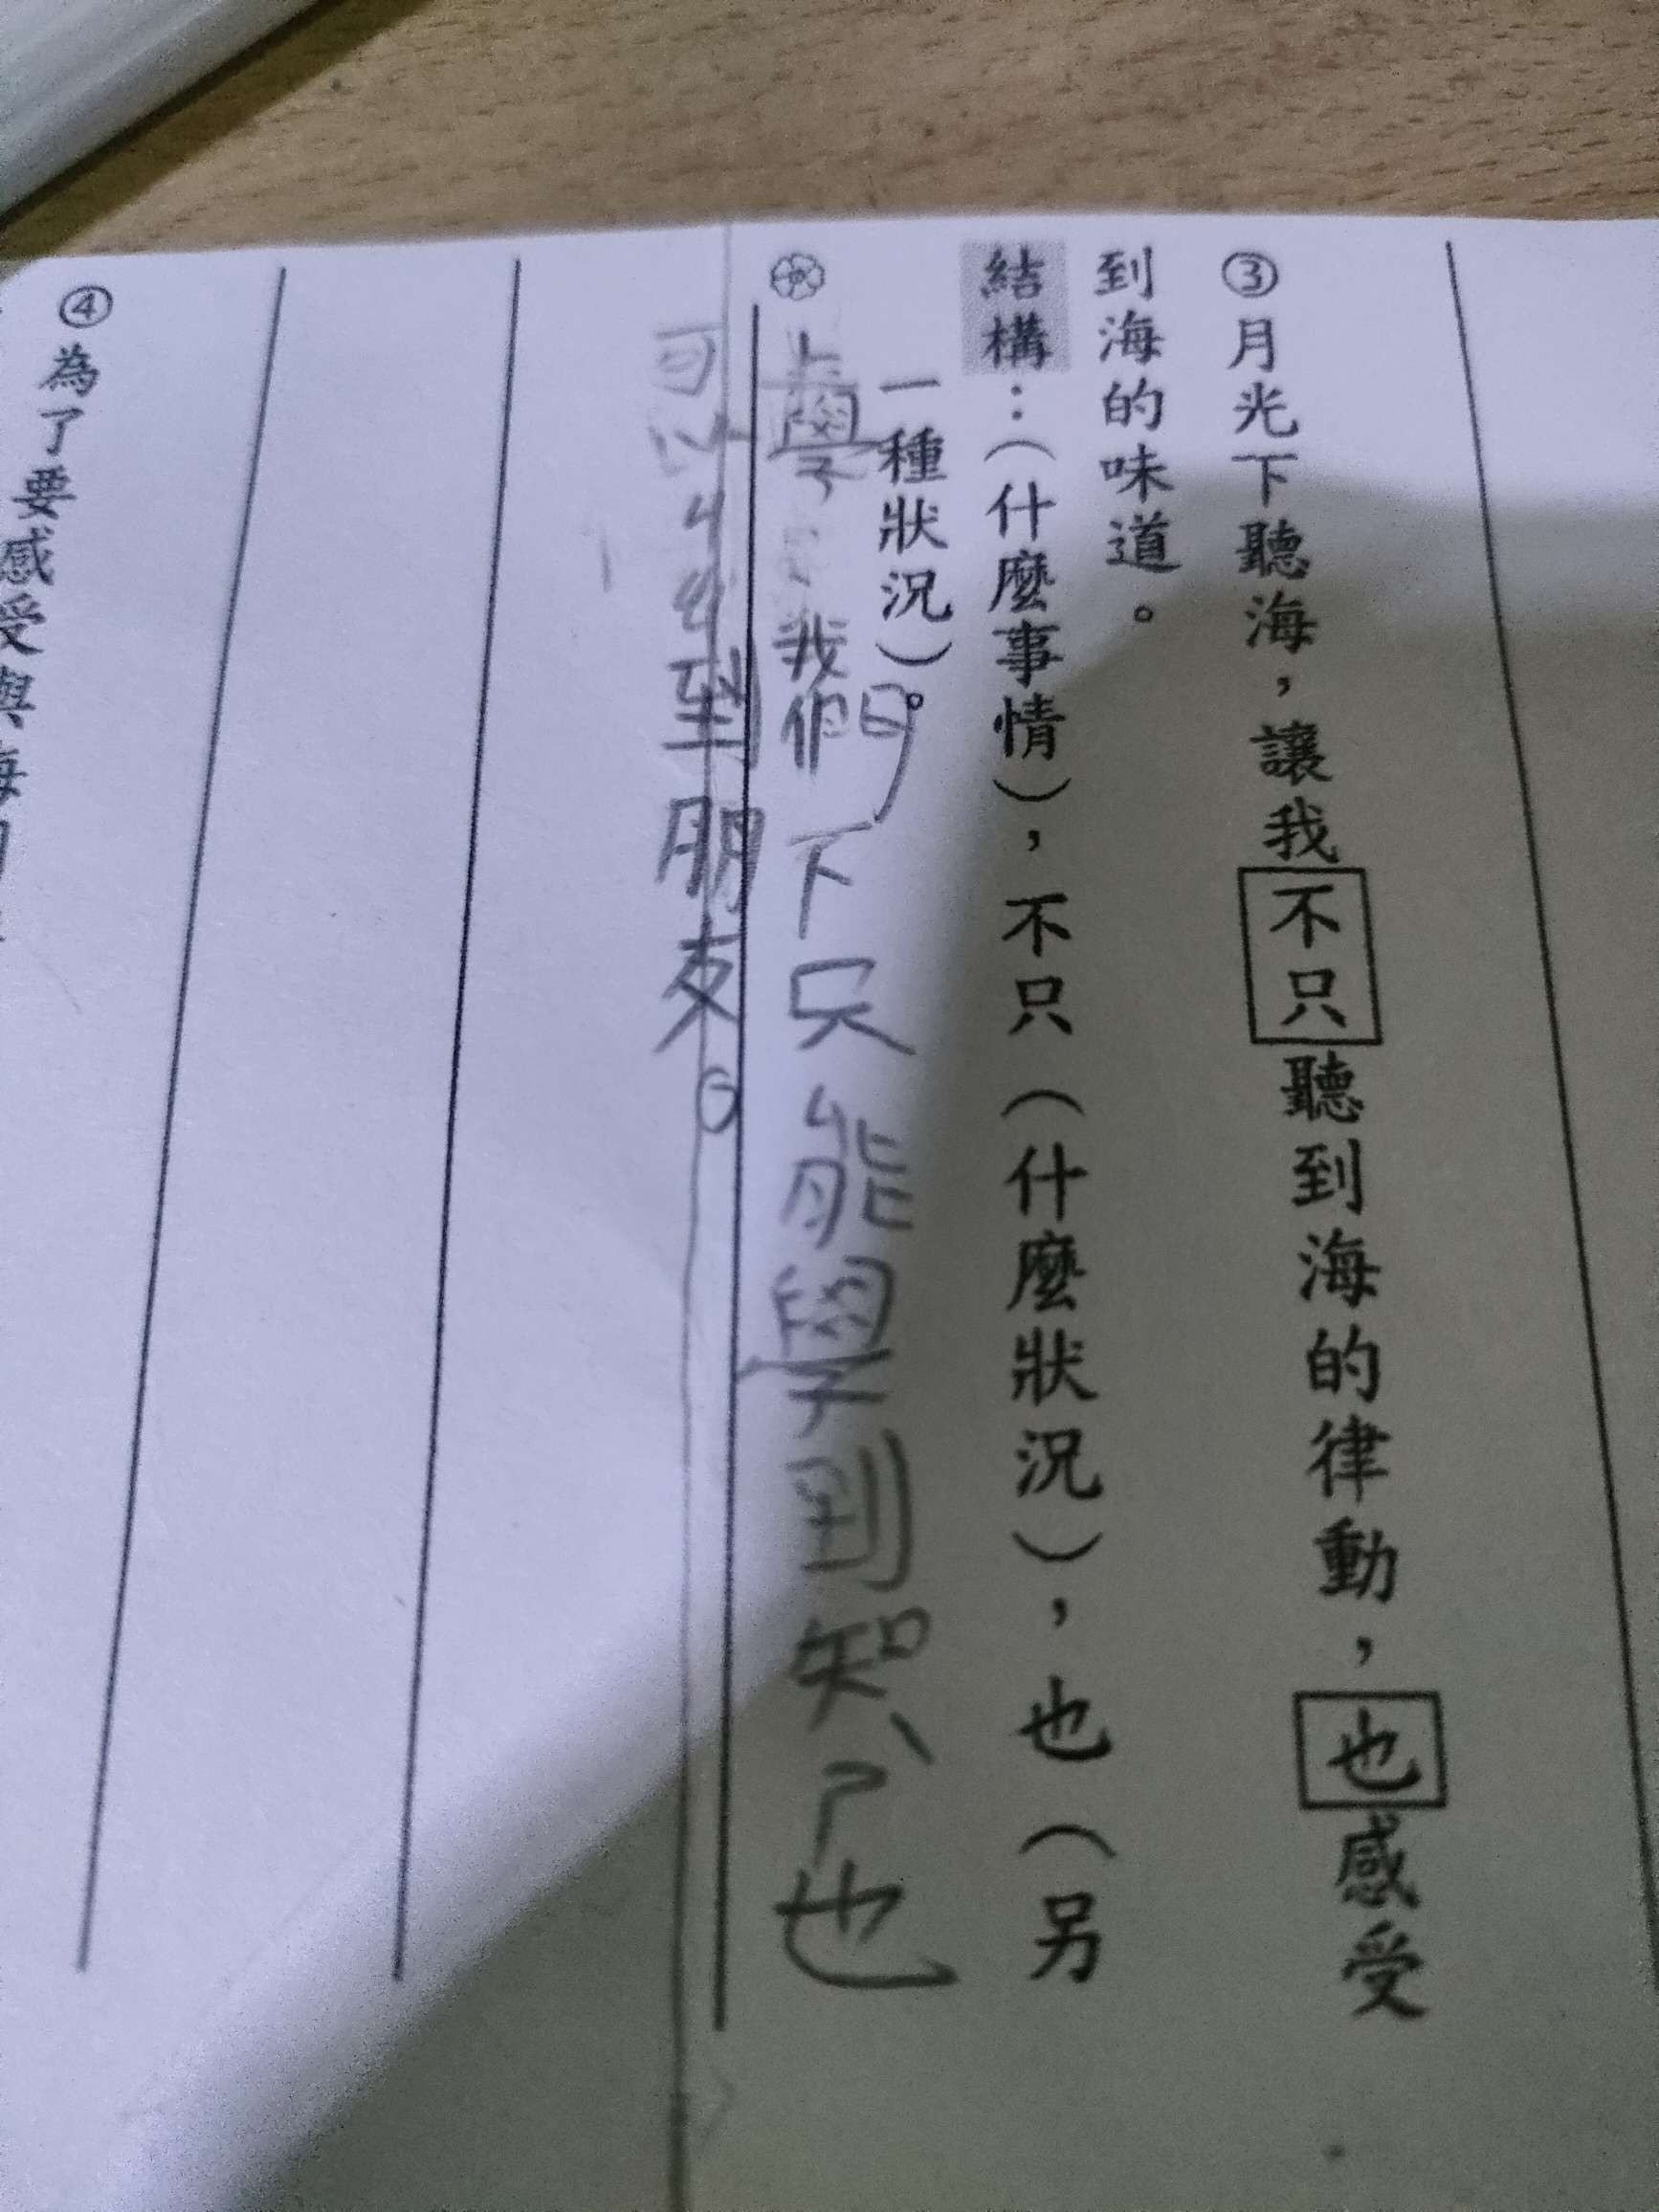 ③月光下聽海，讓我不只聽到海的律動，也感受
到海的味道。
結構：（什麼事情），不只（什麼狀況），也（另
一種狀況）。
上學 我們不只能學到知ㄕ也
可以ㄐㄠ到朋友。
④為了要感受與海